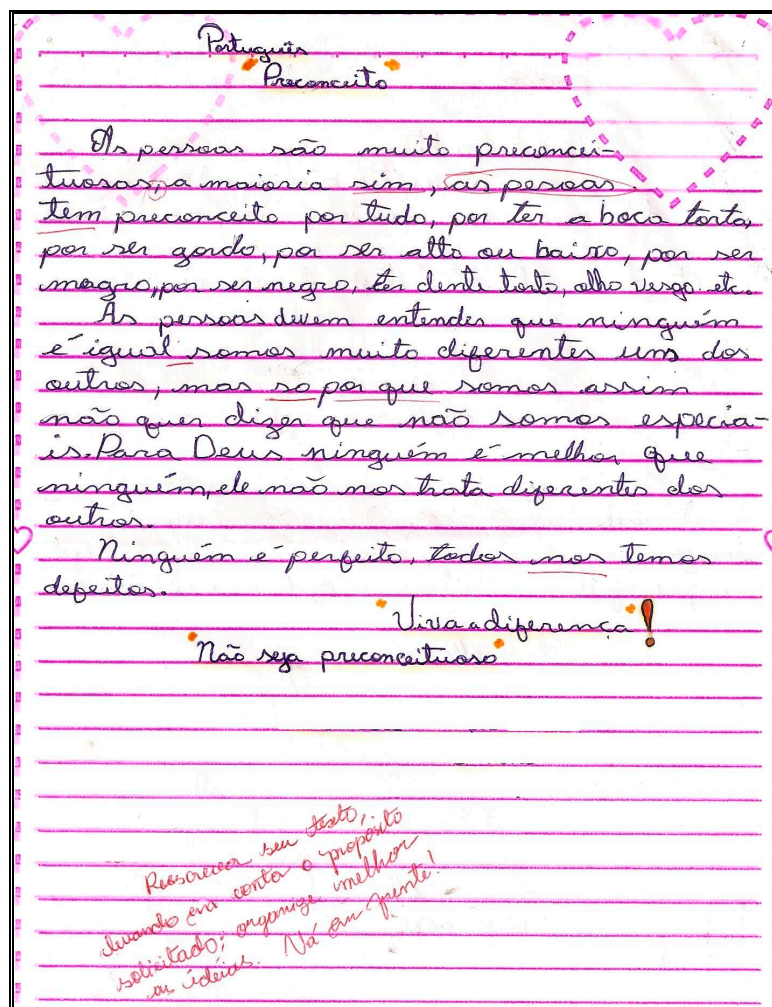 Português
Preconceito
As pessoas são muito preconcei-
tuosas, a maioria sim, as pesoas
tem preconceito por tudo, por ter a boca torta,
por ser gordo, por ser alto ou baixo, por ser
magro, por ser negro, ter dente torto, olho vesgo. etc..
As pessoas devem entender que ninguém
é igual somos muito diferentes uns dos
outros, mas so por que somos assim
não quer dizer que não somos especia-
is. Para Deus ninguém é melhor que
ninguém, ele não nos trata diferentes dos
outros.
Ninguém é perfeito, todos nos temos
defeitos.
Viva a diferença!
Não seja preconceituoso
Reescreva seu texto,
levando em conta o propósito
solicitado; organize melhor
as idéias. Vá em frente!